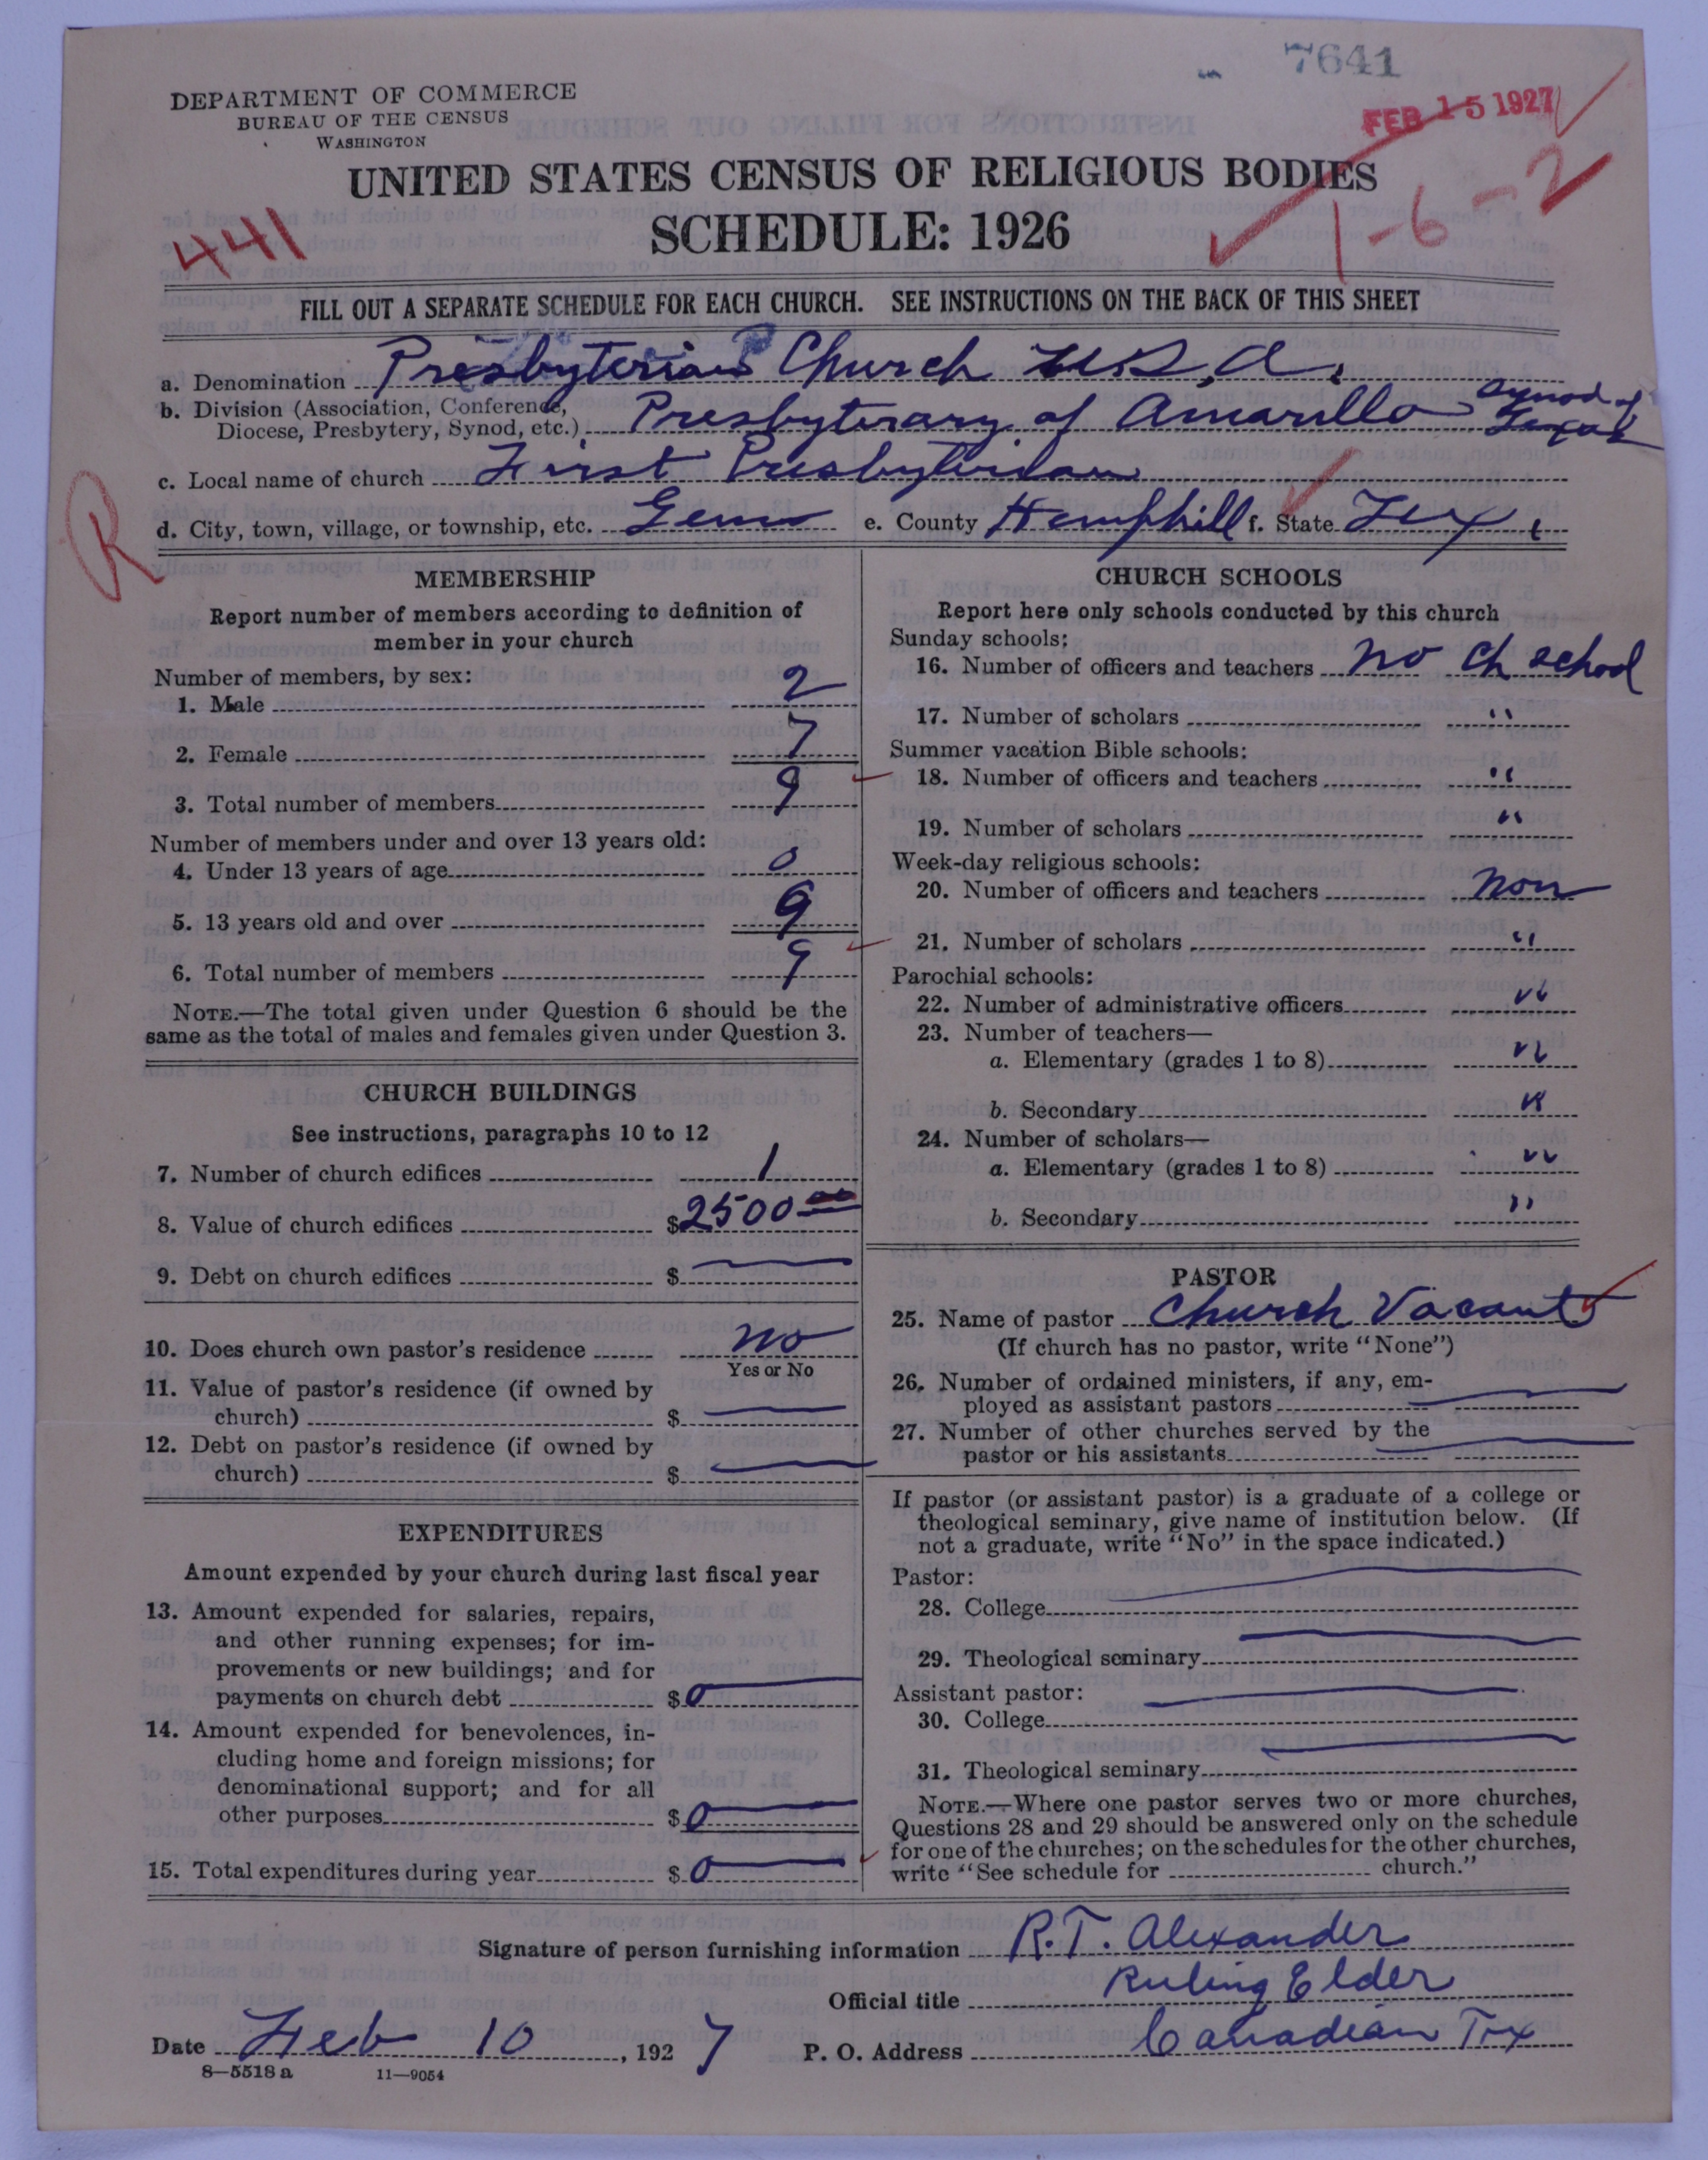 7641
FEB 15 1927
DEPARTMENT OF COMMERCE
BUREAU OF THE CENSUS
WASHINGTON
UNITED STATES CENSUS OF RELIGIOUS BODIES
SCHEDULE: 1926
441
1-6-2
FILL OUT A SEPARATE SCHEDULE FOR EACH CHURCH. SEE INSTRUCTIONS ON THE BACK OF THIS SHEET
a. Denomination Presbyterian Church U.S.A.
b. Division (Association, Conference, Diocese, Presbytery, Synod, etc.) Presbyterary of Amarillo Synod of Texas
c. Local name of church First Presbyterian
R
d. City, town, village, or township, etc. Gem e. County Hemphill f. State Tex.
MEMBERSHIP
Report number of members according to definition of
member in your church
Number of members, by sex:
1. Male 2
2. Female 7
3. Total number of members 9
Number of members under and over 13 years old:
4. Under 13 years of age 0
5. 13 years old and over 9
6. Total number of members 9
NOTE.—The total given under Question 6 should be the
same as the total of males and females given under Question 3.
CHURCH BUILDINGS
See instructions, paragraphs 10 to 12
7. Number of church edifices 1
8. Value of church edifices $2500 00
9. Debt on church edifices $
10. Does church own pastor's residence no
Yes or No
11. Value of pastor's residence (if owned by
church) $
12. Debt on pastor's residence (if owned by
church) $
EXPENDITURES
Amount expended by your church during last fiscal year
13. Amount expended for salaries, repairs,
and other running expenses; for im-
provements or new buildings; and for
payments on church debt $0
14. Amount expended for benevolences, in-
cluding home and foreign missions; for
denominational support; and for all
other purposes $0
15. Total expenditures during year $0
CHURCH SCHOOLS
Report here only schools conducted by this church
Sunday schools:
16. Number of officers and teachers no ch school
17. Number of scholars "
Summer vacation Bible schools:
18. Number of officers and teachers "
19. Number of scholars "
Week-day religious schools:
20. Number of officers and teachers non
21. Number of scholars "
Parochial schools:
22. Number of administrative officers "
23. Number of teachers—
a. Elementary (grades 1 to 8) "
b. Secondary "
24. Number of scholars—
a. Elementary (grades 1 to 8) "
b. Secondary "
PASTOR
25. Name of pastor Church Vacant
(If church has no pastor, write "None")
26. Number of ordained ministers, if any, em-
ployed as assistant pastors
27. Number of other churches served by the
pastor or his assistants
If pastor (or assistant pastor) is a graduate of a college or
theological seminary, give name of institution below. (If
not a graduate, write "No" in the space indicated.)
Pastor:
28. College
29. Theological seminary
Assistant pastor:
30. College
31. Theological seminary
NOTE.—Where one pastor serves two or more churches,
Questions 28 and 29 should be answered only on the schedule
for one of the churches; on the schedules for the other churches,
write "See schedule for church."
Signature of person furnishing information R.T. Alexander
Official title Ruling Elder
Date Feb 10, 1927 P. O. Address Canadian Tex
8—5518 a 11—9054